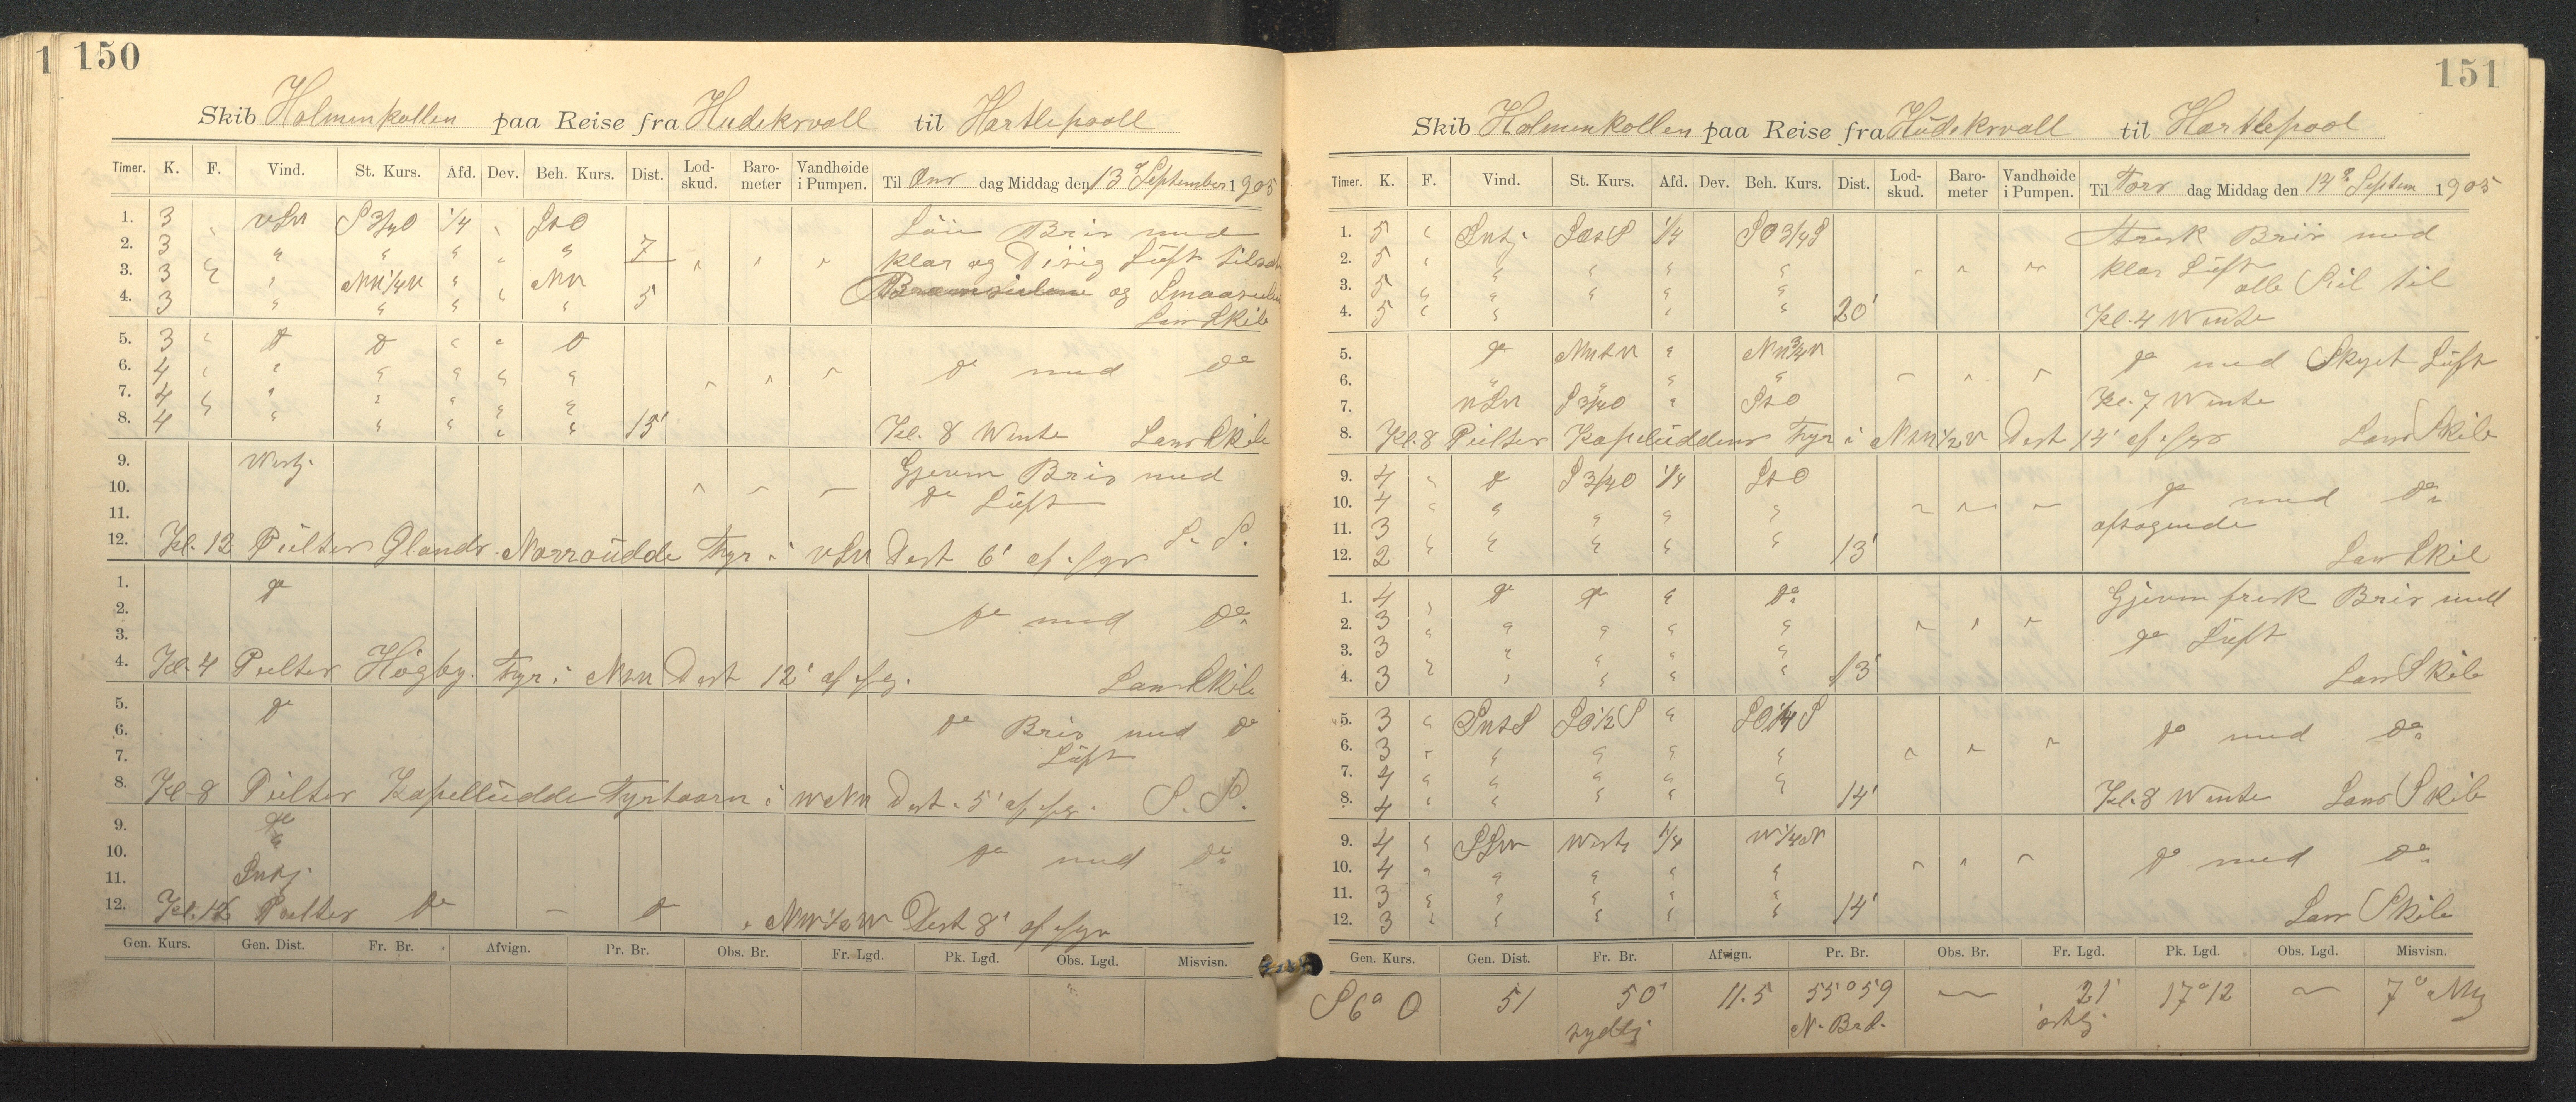 1
150
Skib Holmenkollen paa Reise fra Hudekrvall til Hartlepooll
Timer. K. F. Vind. St. Kurs. Afd. Dev. Beh. Kurs. Dist. Lod-skud. Baro-meter Vandhøide i Pumpen. Til Ons dag Middag den 13 September 1905
1. 3 " S 3/4 O 1/4 S t O Bris med
2. 3 " " " " 7 klar og Disig Lüft
3. 3 " " " og Smaaseilene
4. 3 " " " " " 5 Lars Skib
5. 3 " do do " " do
6. 4 " " " " " " do med do
7. 4 " " " " " "
8. 4 " " " " " 15' Kl. 8 Wente Lars Skib
9. Westj. Gjevm Bris med
10. do Lüft
11.
12. Kl. 12 Peilter Ølands Norroüdde Fyr i vSW Dest 6' af fyr S. P.
1. do
2. do med do
3.
4. Kl. 4 Peilter Högby Fyr i Dest 12' af fyr. Lars Skib
5. do
6. do Bris med do
7. Lüft
8. Kl 8 Peilter Kapellüdde Fyrtaarn i Dest. 5' af fyr. S. P.
9. do
10. do med do
11.
12. Kl. 12 Peilter do — do Dest 8' af fyr
Gen. Kurs. Gen. Dist. Fr. Br. Afvign. Pr. Br. Obs. Br. Fr. Lgd. Pk. Lgd. Obs. Lgd. Misvisn.
151
Skib Holmenkollen paa Reise fra Hüdekrvall til Hartlepool
Timer. K. F. Vind. St. Kurs. Afd. Dev. Beh. Kurs. Dist. Lod-skud. Baro-meter Vandhøide i Pumpen. Til Tors dag Middag den 14de Septem 1905
1. 5 " 1/4 SO 3/4 S Bris med
2. 5 " " " " " klar Lüft
3. 5 " " " " " alle Seil til
4. 5 " " " " 20' Kl. 4 Wente
5. do " do med Skyet Lüft
6. " " " "
7. S 3/4 O " S t O Kl. 7 Wente
8. Kl. 8 Peilter Kapelüddens Fyr i Dest 14' af fyr Lars Skib
9. 4 " do S 3/4 O 1/4 S t O do med do
10. 4 " " " " " aftagende
11. 3 " " "
12. 2 " " " " " 13' Lars Skib
1. 4 " do do " do Gjevm frisk Bris med
2. 3 " " " " " do Lüft
3. 3 " " " "
4. 3 " " " " " 13' Lars Skib
5. 3 " SO 1/2 S " SO 1/4 S do med do
6. 3 " " " " "
7. 4 " " " " "
8. 4 " " " " 14' Kl. 8 Wente Lars Skib
9. 4 " SSW West 1/4 W 1/4 N do med do
10. 4 " " " " "
11. 3 " " " " "
12. 3 " " " " " 14' Lars Skib
Gen. Kurs. Gen. Dist. Fr. Br. Afvign. Pr. Br. Obs. Br. Fr. Lgd. Pk. Lgd. Obs. Lgd. Misvisn.
S 6° O 51 50' sydlj 11.5 55° 59 N. Brd. — 21' østlj. 17° 12 — 7°